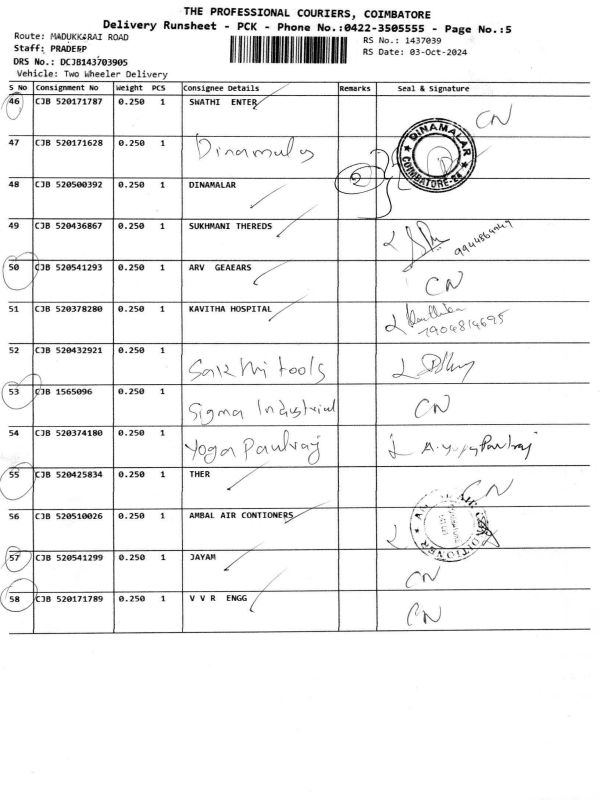 THE PROFESSIONAL COURIERS, COIMBATORE
Delivery Runsheet - PCK - Phone No.:0422-3505555 - Page No.:5
Route: MADUKKARAI ROAD RS No.: 1437039
Staff: PRADEEP RS Date: 03-Oct-2024
DRS No.: DCJB143703905
Vehicle: Two Wheeler Delivery
S No Consignment No Weight PCS Consignee Details Remarks Seal & Signature
46 CJB 520171787 0.250 1 SWATHI ENTER CN
47 CJB 520171628 0.250 1 Dinamalar DINAMALAR COIMBATORE-24
48 CJB 520500392 0.250 1 DINAMALAR 2
49 CJB 520436867 0.250 1 SUKHMANI THEREDS
50 CJB 520541293 0.250 1 ARV GEAEARS CN
51 CJB 520378280 0.250 1 KAVITHA HOSPITAL 7904814695
52 CJB 520432921 0.250 1 Sakthi tools
53 CJB 1565096 0.250 1 Sigma Industrial CN
54 CJB 520374180 0.250 1 Yoga Paulraj
55 CJB 520425834 0.250 1 THER CN
56 CJB 520510026 0.250 1 AMBAL AIR CONTIONERS
57 CJB 520541299 0.250 1 JAYAM CN
58 CJB 520171789 0.250 1 V V R ENGG CN